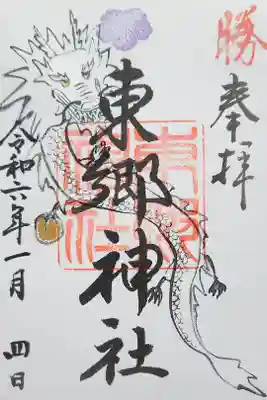 勝
奉拝
東郷神社
東郷神社
令和六年一月四日